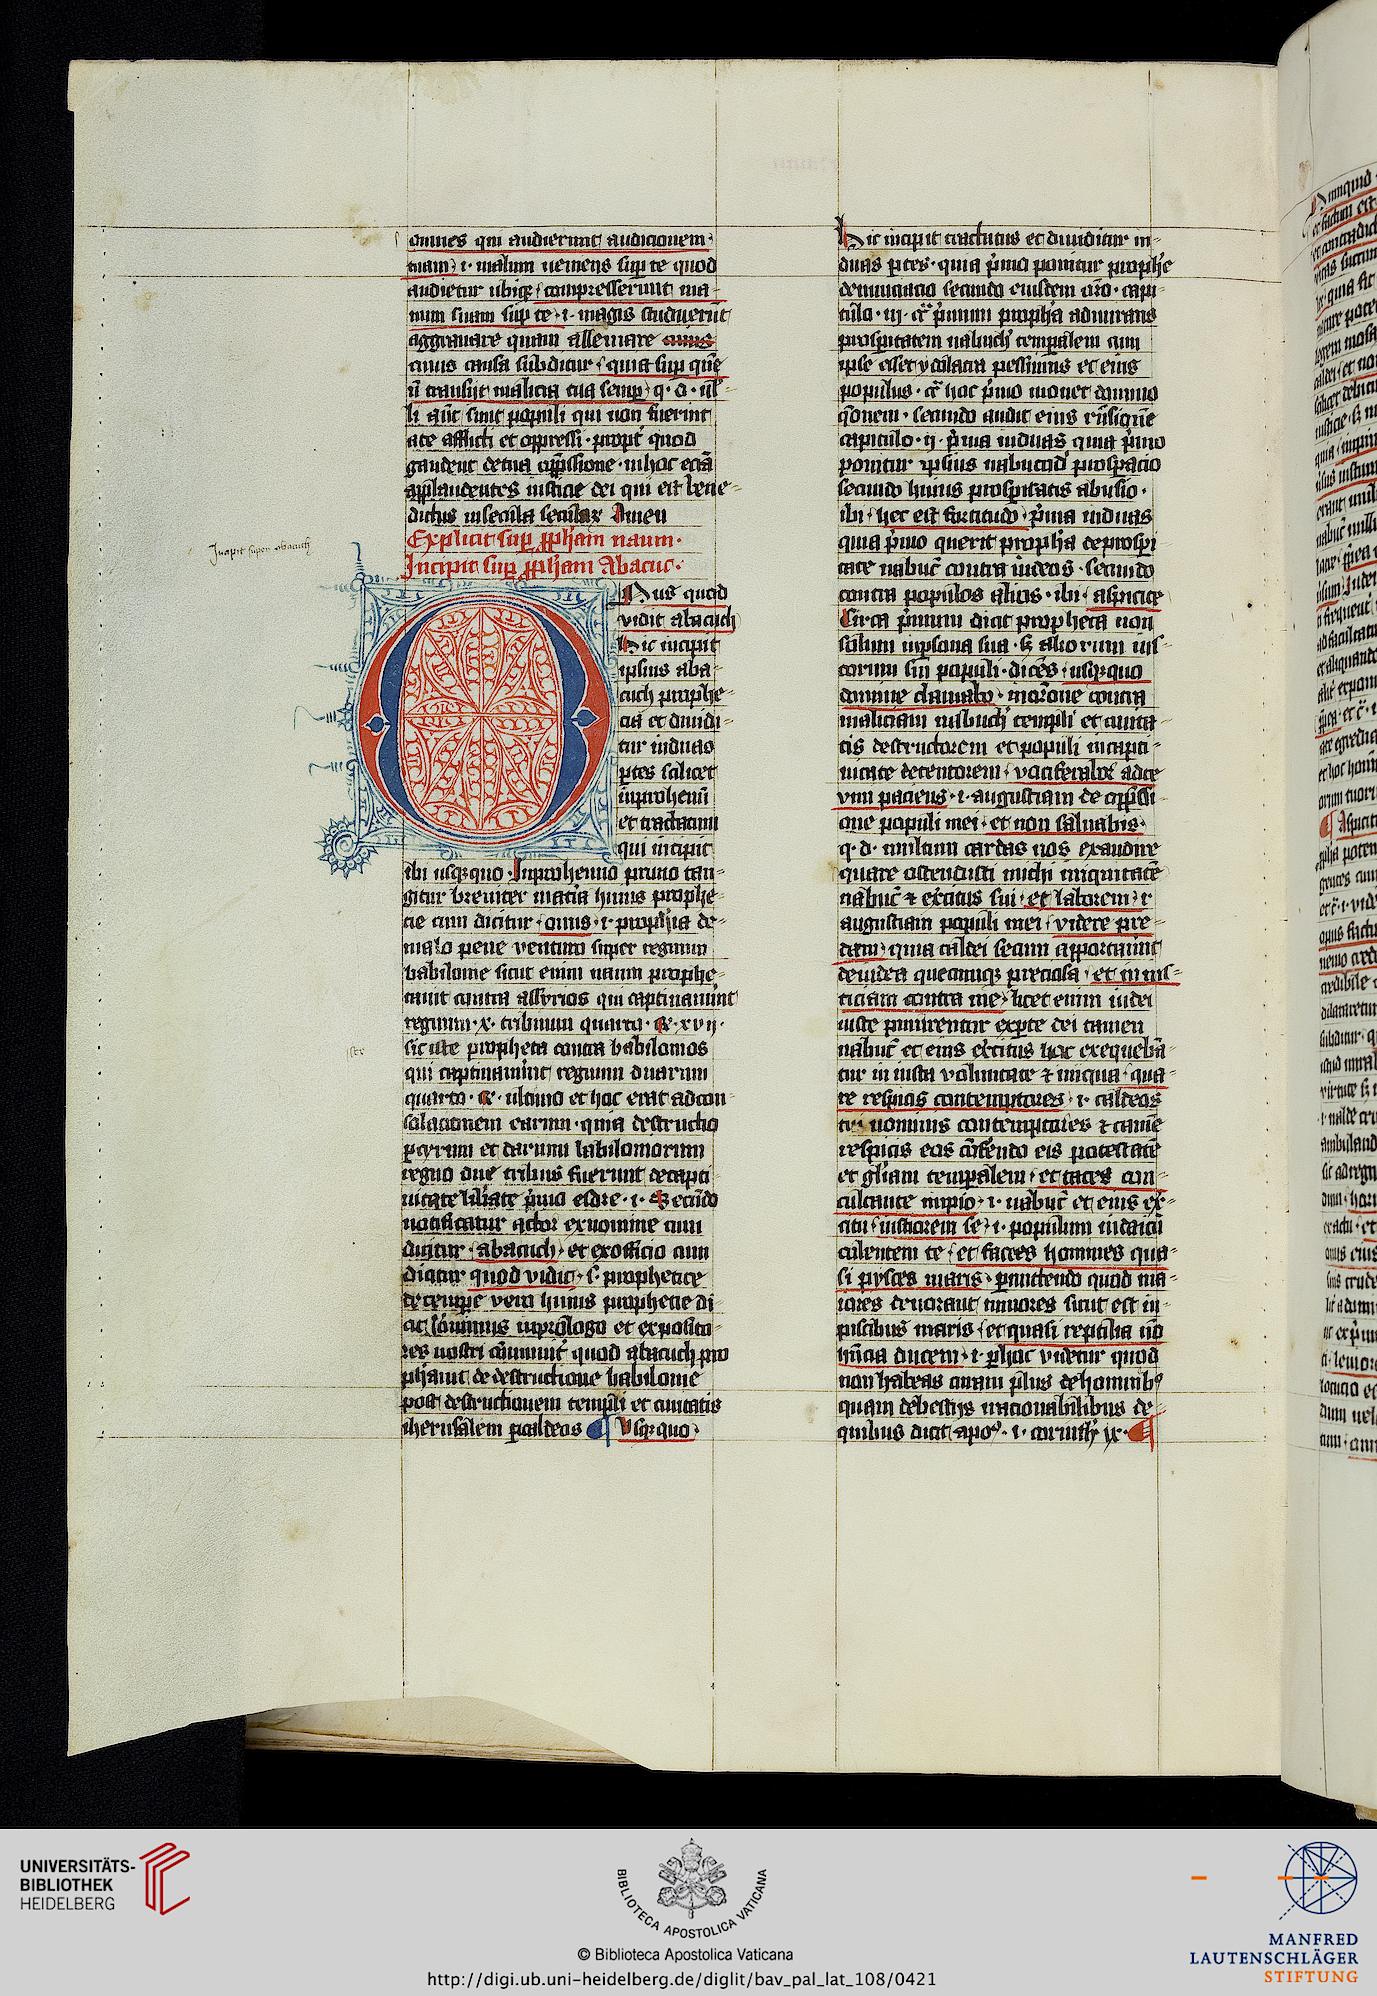 omnes qui audierunt audicionem
tuam · i · malum veniens sup te quod
audietur ubiqꝫ compresserunt ma-
num suam sup te · i · magis studuerūt
aggravare quam alleviare cuius
cuius causa subditur quia sup quē
nō transijt malicia tua semꝑ q · d · nl̄-
li aūt sunt populi qui non fuerint
a te afflicti et oppressi · propt' quod
gaudent de tua opp̄ssione · in hoc eciā
applaudentes iusticie dei qui est bene-
dictus in secula seculoꝝ Amen
Explicit suꝑ ꝓph̄am naum ·
Incipit suꝑ ꝓph̄am Abacuc ·
Incipit super abacuch
Onus quod
vidit abacuch
Hic incipit
ipsius aba-
cuch prophe-
cia et dividi-
tur in duas
ꝑtes scilicet
in prohemiū
et tractatum
qui incipit
ibi usqꝫquo · In prohemio primo tan-
gitur breviter mat'ia huius prophe-
cie cum dicitur · onus · i · proph'ia de
malo pene venturo super regnum
babilonie sicut enim naum prophe-
tavit contra assyrios qui captivaverūt
regnum · x · tribuum quarto · R · xvij ·
sic iste propheta contra babilonios
iste
qui captivaverūt regnum duarum
quarto · R · ultimo et hoc erat ad con-
solacionem earum · quia destructo
ꝑ cyrum et darium babiloniorum
regno due tribus fuerunt de capti-
vitate lib'ate p̄mo esdre · i · Secūdo
notificatur actor ex nomine cum
dicitur abacuch · et ex officio cum
dicitur quod vidit · s · prophetice
de tempe vero huius prophetie di-
cit in prologo et exposito-
res nostri quod abacuch pro
ph'avit de destructione babilonie
post destructionem templi et civitatis
iherusalem ꝑ caldeos ¶ Usqꝫ quo ·
Hic incipit tractatus et dividitur in
duas ꝑtes · quia p̄mo ponitur prophe
denunciacio secundo eiusdem or̄o · capi-
tulo · iij · Cᵃ p̄mum proph'a admirans
prosperitatem nabuch' temporalem cum
ipse esset ydolatra pessimus et eius
populus · Cᵃ hoc p̄mo movet domino
q̄onem · secundo audit eius rn̄siquē
capitulo · ij · p̄ma in duas quia p̄mo
ponitur ipsius nabucod' prosperacio
secundo huius prosperitatis abusio ·
ibi · hec est fortitudo · p̄ma in duas
quia p̄mo querit proph'a de prosperi
tate nabuc̄ contra iudeos · secundo
contra populos alios · ibi · aspicite
Circa p̄mum dicit propheta non
solum in ꝑsona sua · sꝫ aliorum ius-
torum sui populi · dicēs · usqꝫquo
domine clamabo · in or̄one contra
maliciam nabuch' templi et civita-
tis destructorem et populi in capti-
vitate detentorem · vociferabor ad te
vim paciens · i · angustiam de opp̄ssi-
one populi mei · et non salvabis ·
q · d · multum tardas nos exaudire
quare ostendisti michi iniquitatē
nabuc̄ et exercitus sui · et laborem · i ·
angustiam populi mei · videre pre-
dam · quia caldei secum apportaverūt
de iudea quecumqꝫ preciosa · et in ius-
ticiam contra me · licet enim iudei
iuste punirentur ex ꝑte dei tamen
nabuc̄ et eius ex'citus hoc exequebā-
tur in iusta voluntate et iniqua · qua-
re respicis contemptores · i · caldeos
tui nominis contemptores et tamē
respicis eos cōferendo eis potestatē
et gl'iam temporalem · et taces con-
culcante impio · i · nabuc̄ et eius ex'-
citu · iustiorem se · i · populum iudaicū
colentem te · et facies homines qua-
si pisces maris · ꝑmittendo quod ma-
iores devorant minores sicut est in
piscibus maris · et quasi reptilia nō
hn̄cia ducem · i · ꝑ hoc videtur quod
non habeas curam plus de hominibꝰ
quam de bestijs irracionabilibus de
quibus dicit apoꝰ · i · corinth' ix · ¶
UNIVERSITÄTS-
BIBLIOTHEK
HEIDELBERG
BIBLIOTECA APOSTOLICA VATICANA
© Biblioteca Apostolica Vaticana
http://digi.ub.uni-heidelberg.de/diglit/bav_pal_lat_108/0421
MANFRED
LAUTENSCHLÄGER
STIFTUNG